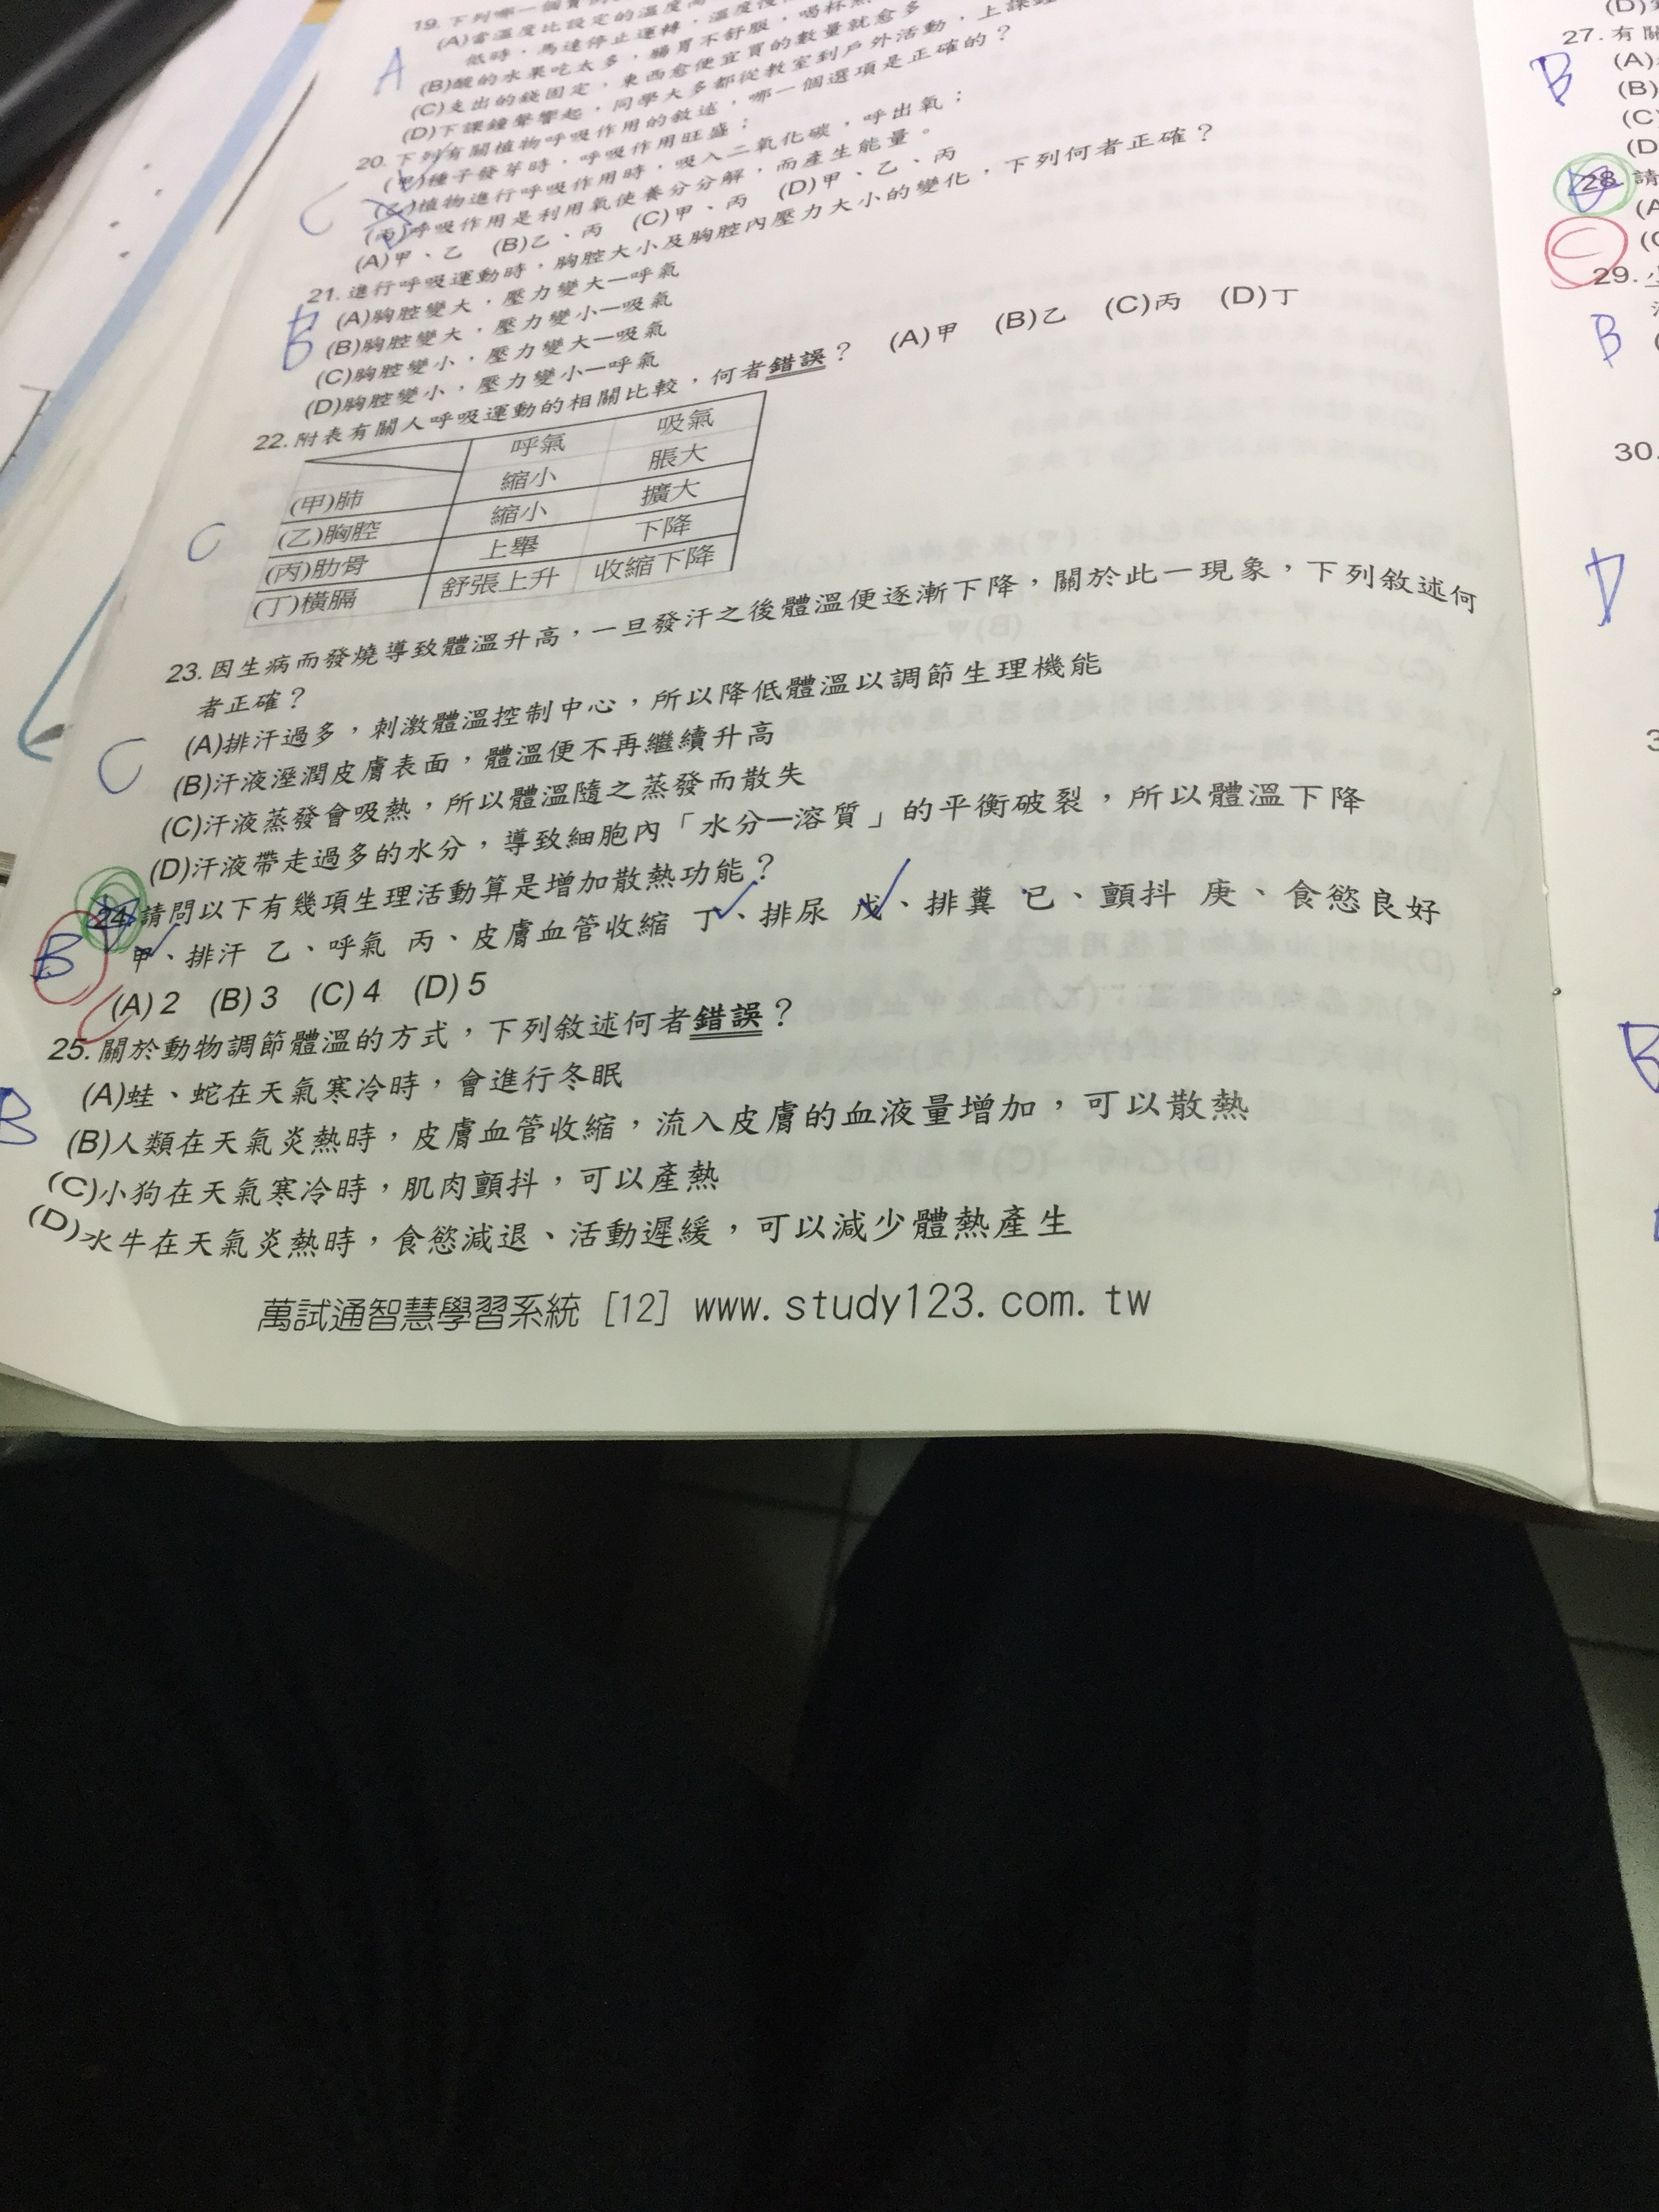 19.下列哪一個實
(A)當溫度比設定的溫度高
低時，馬達停止運轉，溫度後
(B)酸的水果吃太多，腸胃不舒服，喝杯
(C)支出的錢固定，東西愈便宜買的數量就愈多
(D)下課鐘聲響起，同學大多都從教室到戶外活動，上課
A
20.下列有關植物呼吸作用的敘述，哪一個選項是正確的？
(甲)種子發芽時，呼吸作用旺盛；
(乙)植物進行呼吸作用時，吸入二氧化碳，呼出氧；
(丙)呼吸作用是利用氧使養分分解，而產生能量。
(A)甲、乙 (B)乙、丙 (C)甲、丙 (D)甲、乙、丙
C
21.進行呼吸運動時，胸腔大小及胸腔內壓力大小的變化，下列何者正確？
(A)胸腔變大，壓力變大—呼氣
(B)胸腔變大，壓力變小—吸氣
(C)胸腔變小，壓力變大—吸氣
(D)胸腔變小，壓力變小—呼氣
B
22.附表有關人呼吸運動的相關比較，何者錯誤？ (A)甲 (B)乙 (C)丙 (D)丁
呼氣 吸氣
(甲)肺 縮小 脹大
(乙)胸腔 縮小 擴大
(丙)肋骨 上舉 下降
(丁)橫膈 舒張上升 收縮下降
C
23.因生病而發燒導致體溫升高，一旦發汗之後體溫便逐漸下降，關於此一現象，下列敘述何
者正確？
(A)排汗過多，刺激體溫控制中心，所以降低體溫以調節生理機能
(B)汗液溼潤皮膚表面，體溫便不再繼續升高
(C)汗液蒸發會吸熱，所以體溫隨之蒸發而散失
(D)汗液帶走過多的水分，導致細胞內「水分—溶質」的平衡破裂，所以體溫下降
C
24.請問以下有幾項生理活動算是增加散熱功能？
甲、排汗 乙、呼氣 丙、皮膚血管收縮 丁、排尿 戊、排糞 已、顫抖 庚、食慾良好
(A) 2 (B) 3 (C) 4 (D) 5
B
25.關於動物調節體溫的方式，下列敘述何者錯誤？
(A)蛙、蛇在天氣寒冷時，會進行冬眠
(B)人類在天氣炎熱時，皮膚血管收縮，流入皮膚的血液量增加，可以散熱
(C)小狗在天氣寒冷時，肌肉顫抖，可以產熱
(D)水牛在天氣炎熱時，食慾減退、活動遲緩，可以減少體熱產生
B
萬試通智慧學習系統 [12] www.study123.com.tw
(D)
27.有關
(A)
(B)
(C)
(D
B
28.請
(A
(C
C
29.
B
30.
D
3
B